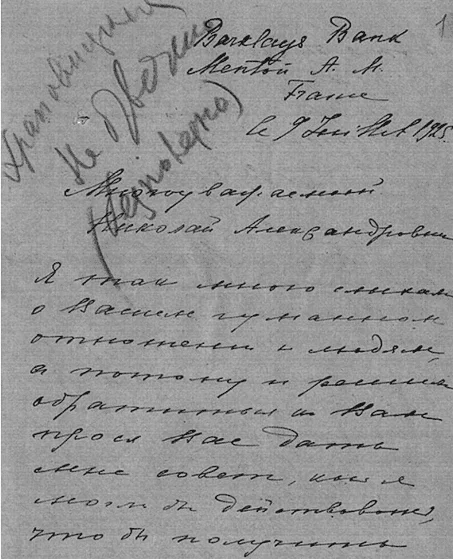 1
Barclays Bank
Menton A. M.
France
le 9 Juillet 1925
Не
Многоуважаемый
Николай Александрович
Я так много слыхал
о Вашем гуманном
отношении к людям,
а потому и решил
обратиться к Вам
прося Вас дать
мне совет, как я
могла бы действовать,
что бы получить